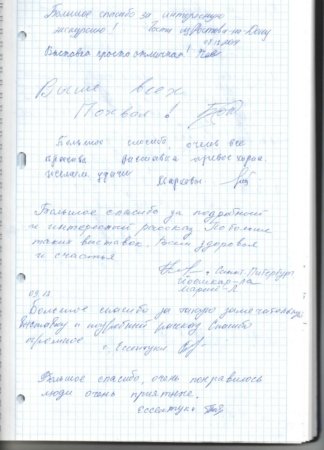 Большое спасибо за интересную
экскурсию! Гости из Ростова-на-Дону
Выставка просто отличная!
Выше всех
Похвал!
Большое спасибо, очень все
красиво выставка превосходна
желаем удачи
Большое спасибо за подробный
и интересный рассказ. Побольше
таких выставок. Всем здоровья
и счастья
г. Санкт-Петербург
Йошкар-Ла
Марий-Л
09.18
Большое спасибо за такую замечательную
выставку и подробный рассказ Спасибо
огромное г. Ессентуки
Большое спасибо, очень понравилось
люди очень приятные.
Ессентуки